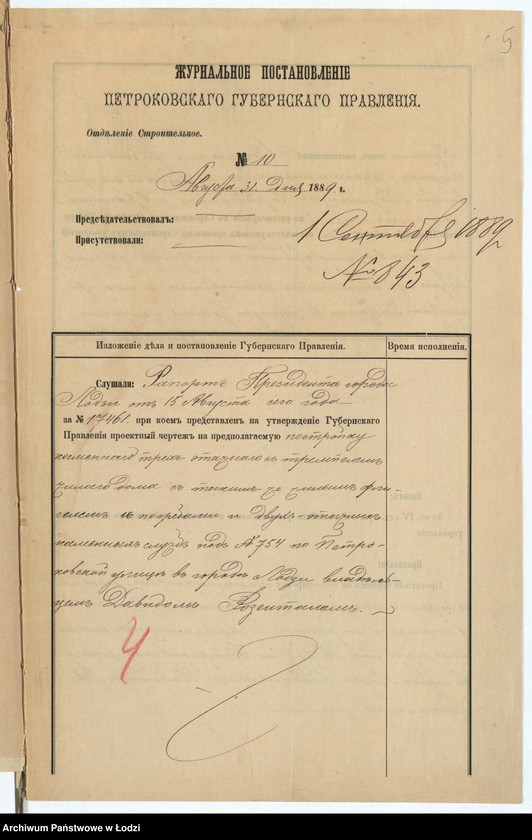 5
ЖУРНАЛЬНОЕ ПОСТАНОВЛЕНІЕ
ПЕТРОКОВСКАГО ГУБЕРНСКАГО ПРАВЛЕНІЯ.
Отдѣленіе Строительное.
№ 10
Августа 31 дня 1889 г.
Предсѣдательствовалъ:
Присутствовали:
1 Сентября 1889
№ 843
Изложеніе дѣла и постановленіе Губернскаго Правленія.
Время исполненія.
Слушали: Рапортъ Президента города
Лодзи отъ 15 Августа сего года
за № 17461. при коемъ представленъ на утвержденіе Губернскаго
Правленія проектный чертежъ на предполагаемую постройку
каменнаго трехъ этажнаго съ
жилаго дома съ таким же жилым фли-
гелемъ и погребами и двухъ-этажныхъ
каменныхъ службъ подъ № 754 по Петро-
ковской улицѣ въ городѣ Лодзи владѣль-
цемъ Давидомъ Розенталемъ.
4
Archiwum Państwowe w Łodzi